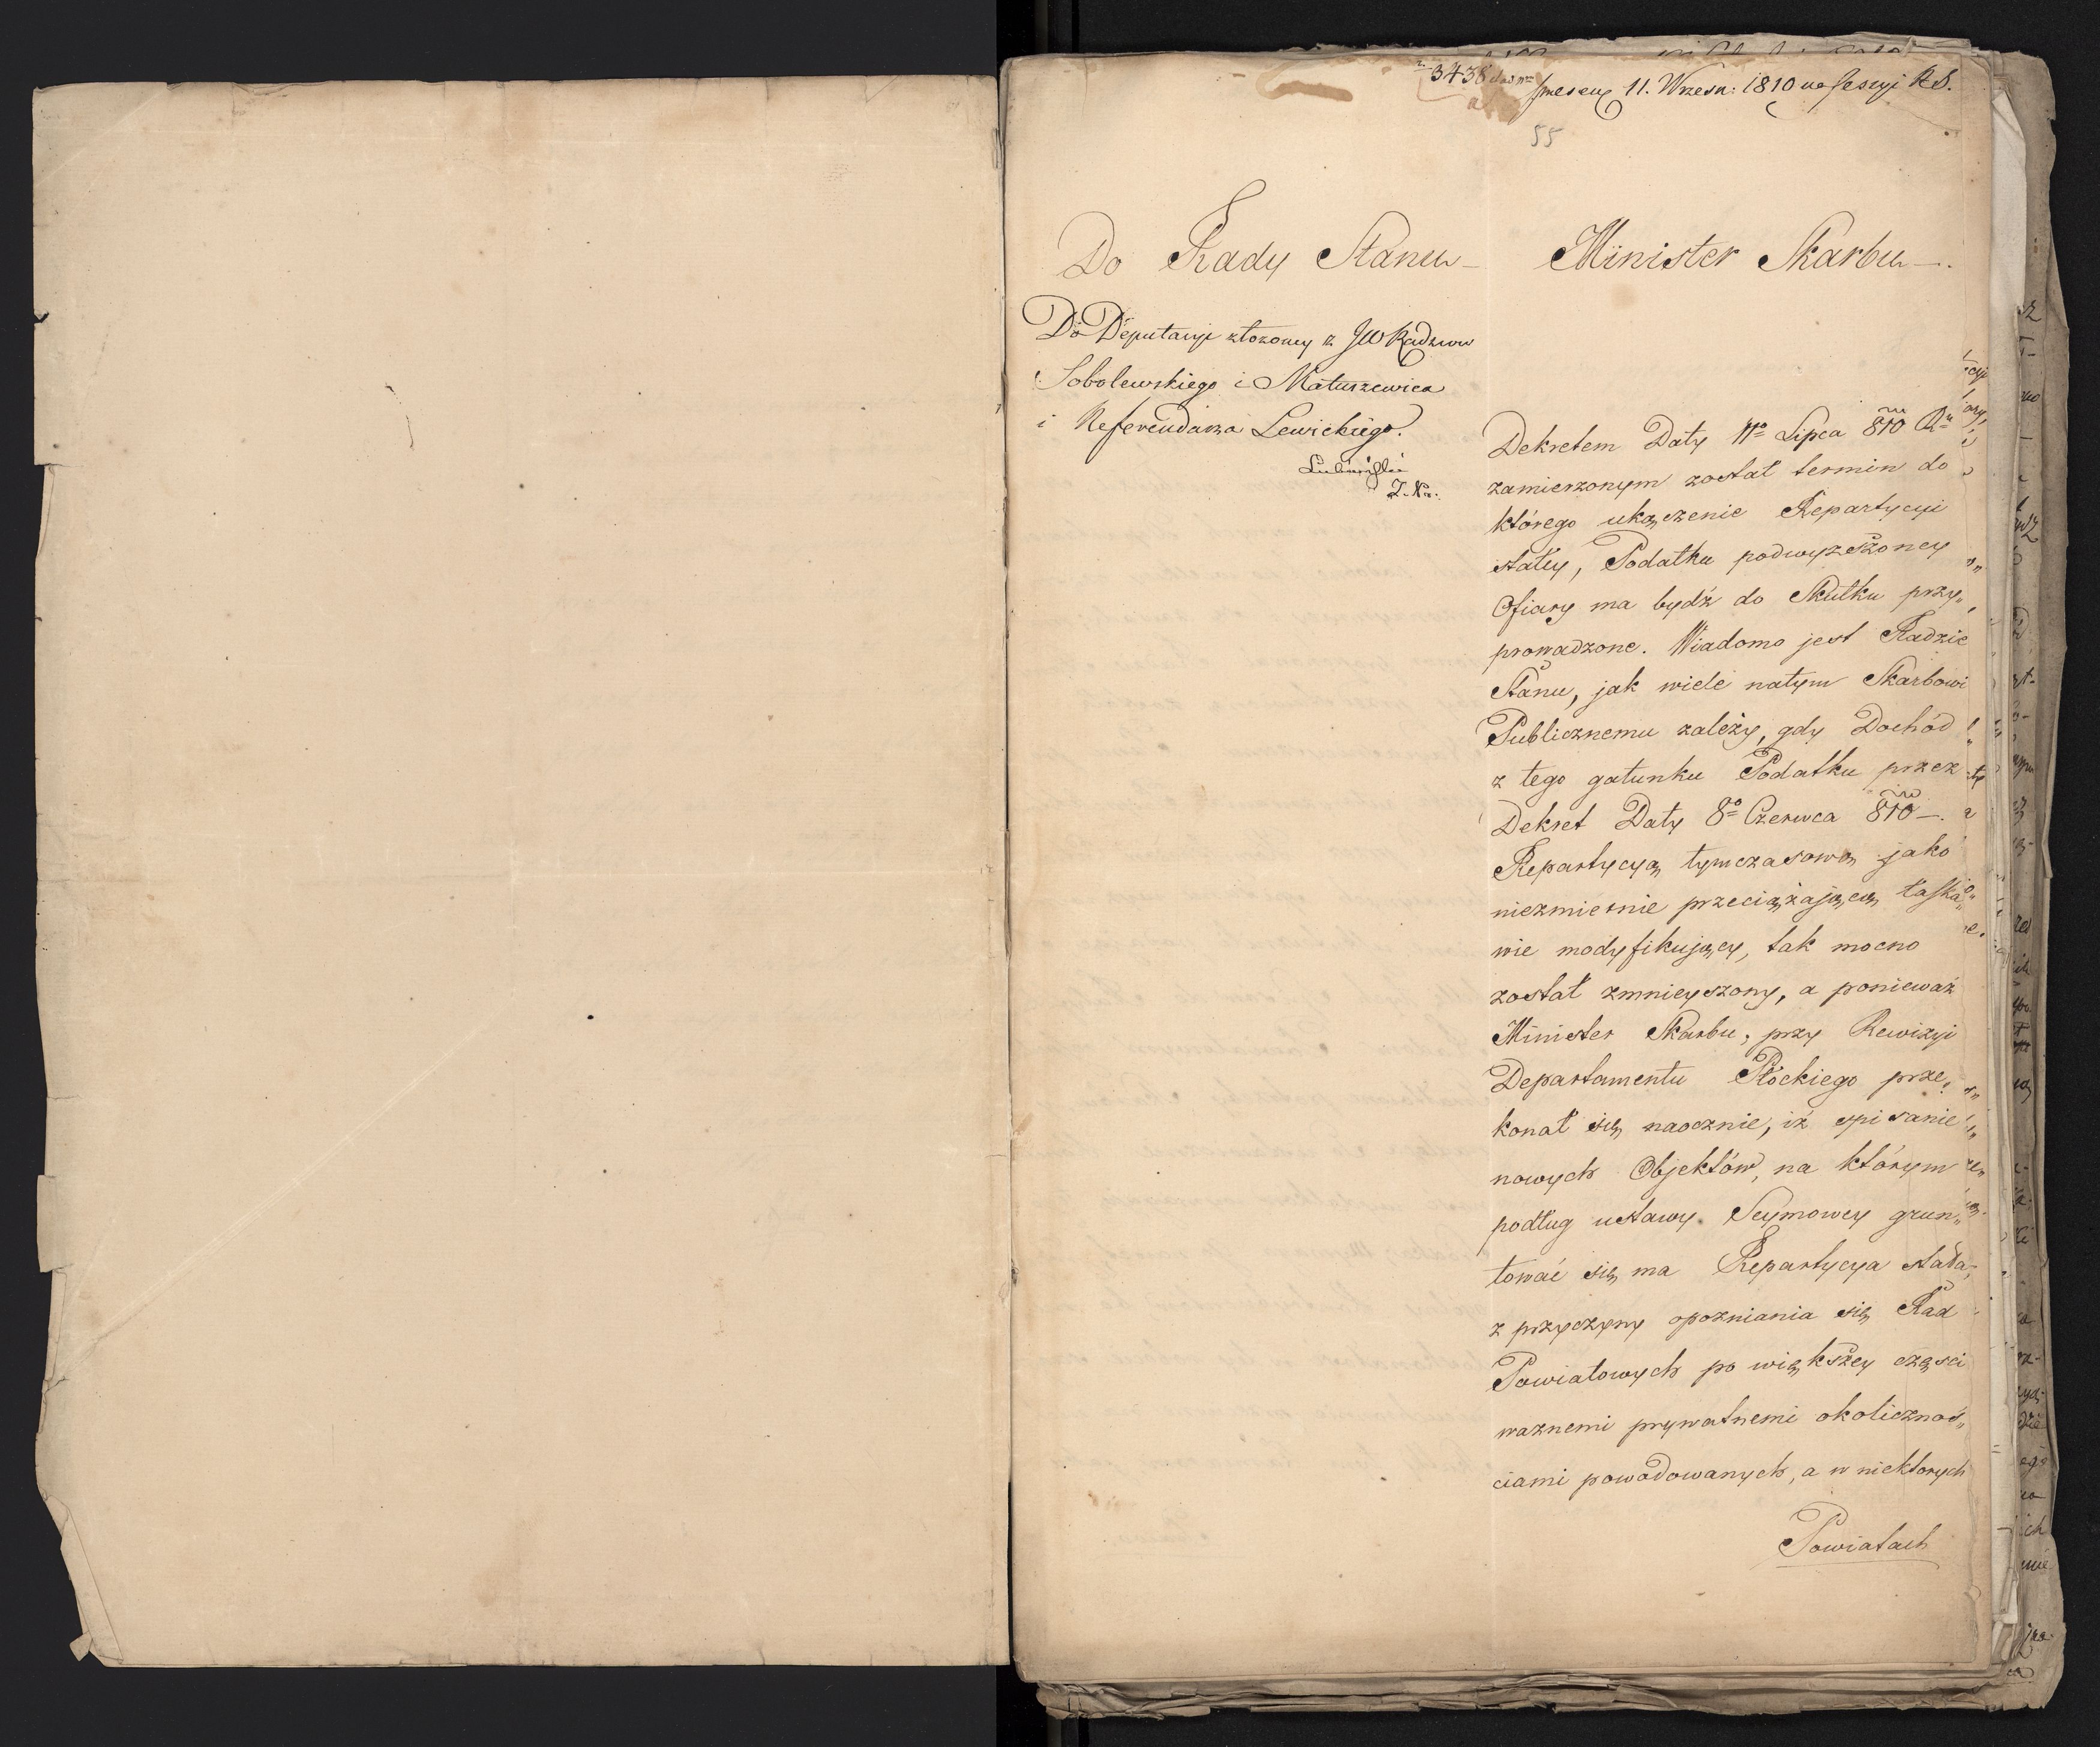 3438
11. Wrzesn: 1810 na sessyi RS.
55
Do Rady Stanu
Minister Skarbu
Do Deputacyi złożoney z JW Radzców
Sobolewskiego i Matuszewica
i Referendarza Lewickiego.
Dekretem Daty 11º Lipca 810
zamierzonym został termin do
którego ukączenie Repartycyi
stałey, Podatku podwyzszoney
Ofiary ma bydź do Skutku przy„
prowadzone. Wiadomo jest Radzie
Stanu, jak wiele natym Skarbowi
Publicznemu zależy, gdy Dochód
z tego gatunku Podatku przez
Dekret Daty 8º Czerwca 810
Repartycyą tymczasową jako
niezmiernie przeciążającą łaska„
wie modyfikujący, tak mocno
został zmnieyszony, a ponieważ
Minister Skarbu, przy Rewizyi
Departamentu Płockiego prze„
konał się naocznie, iż spisanie
nowych Objektów, na którym
podług ustawy Seymowey grun„
tować się ma Repartycya stała,
z przyczyny opozniania się Rad
Powiatowych po większey częsci
waznemi prywatnemi okolicznoś„
ciami powodowanych, a w niektorych
Powiatach